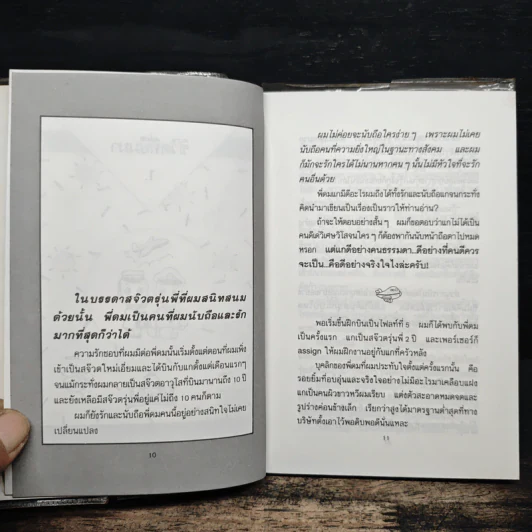 ในบรรดาสจ๊วตรุ่นพี่ที่ผมสนิทสนม
ด้วยนั้น พี่ดมเป็นคนที่ผมนับถือและรัก
มากที่สุดก็ว่าได้
ความรักชอบที่ผมมีต่อพี่ดมนั้นเริ่มตั้งแต่ตอนที่ผมเพิ่ง
เข้าเป็นสจ๊วตใหม่เอี่ยมและได้ฝึกบินตั้งแต่เดือนแรกๆ
จนแม้กระทั่งผมกลายเป็นสจ๊วตอาวุโสที่บินมานานถึง 10 ปี
และยังเหลือมีสจ๊วตรุ่นพี่อยู่แค่ไม่ถึง 10 คนก็ตาม
ผมก็ยังรักและนับถือพี่ดมคนนี้อยู่อย่างสนิทใจไม่เคย
เปลี่ยนแปลง
10
ผมไม่ค่อยจะนับถือใครง่ายๆ เพราะผมไม่เคย
นับถือคนที่ความยิ่งใหญ่ในฐานะทางสังคม และผม
ก็มักจะรักใครได้ไม่นานหากคนๆ นั้นไม่มีหัวใจที่จะรัก
คนอื่นด้วย
พี่ดมแกมีดีอะไรผมถึงได้ทั้งรักและนับถือแกจนกระทั่ง
คิดนำมาเขียนเป็นเรื่องเป็นราวให้ท่านอ่าน?
ถ้าจะให้ตอบอย่างสั้นๆ ผมก็ขอตอบว่าแกไม่ได้เป็น
คนดีเด่วิเศษวิโสจนใครๆ ก็ต้องพากันนับหน้าถือตาไปหมด
หรอก แต่แกดีอย่างคนธรรมดา..ดีอย่างที่คนดีควร
จะเป็น...คือดีอย่างจริงใจไงล่ะครับ!
พอเริ่มขึ้นฝึกบินเป็นไฟลท์ที่ 5 ผมก็ได้พบกับพี่ดม
เป็นครั้งแรก แกเป็นสจ๊วตรุ่นพี่ 2 ปี และเพอร์เซอร์ก็
assign ให้ผมฝึกงานอยู่กับแกที่ครัวหลัง
บุคลิกของพี่ดมที่ผมประทับใจตั้งแต่ครั้งแรกนั้น คือ
รอยยิ้มที่อบอุ่นและจริงใจอย่างไม่มีอะไรมาเคลือบแฝง
แกเป็นคนผิวขาวหวีผมเรียบ แต่งตัวสะอาดหมดจดและ
รูปร่างค่อนข้างเล็ก เรียกว่าสูงได้มาตรฐานต่ำสุดที่ทาง
บริษัทตั้งเอาไว้พอดิบพอดีนั่นแหละ
11